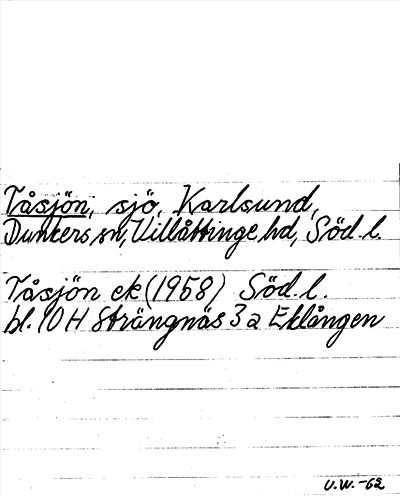 Tåsjön, sjö, Karlsund,
Dunkers sn, Villåttinge hd, Söd. l.
Tåsjön ek (1958) Söd. l.
bl. 10 H Strängnäs 3 a Eklången
U.W. -62